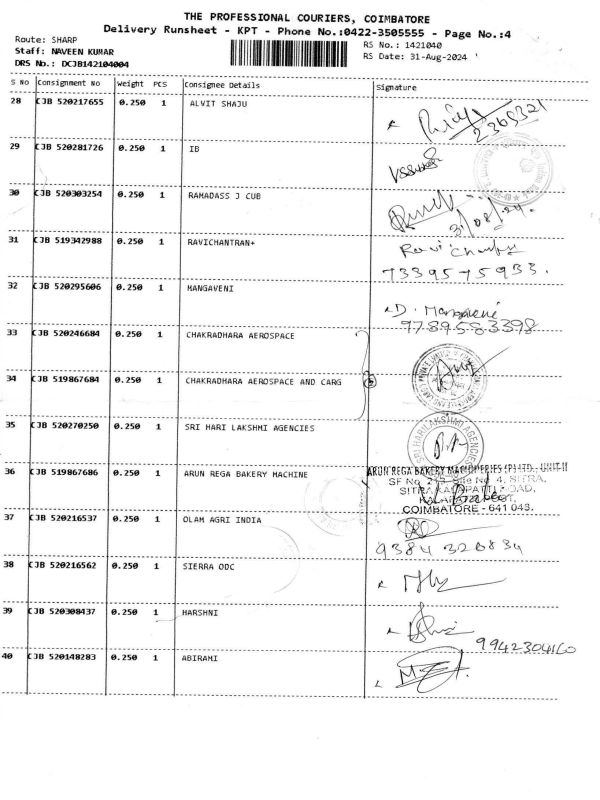 THE PROFESSIONAL COURIERS, COIMBATORE
Delivery Runsheet - KPT - Phone No.:0422-3505555 - Page No.:4
Route: SHARP
Staff: NAVEEN KUMAR
DRS No.: DCJB142104004
RS No.: 1421040
RS Date: 31-Aug-2024
S No Consignment No Weight PCS Consignee Details Signature
28 CJB 520217655 0.250 1 ALVIT SHAJU
2365321
29 CJB 520281726 0.250 1 IB
30 CJB 520303254 0.250 1 RAMADASS J CUB
31/08/24.
31 CJB 519342988 0.250 1 RAVICHANTRAN+
Ravi
7339575933.
32 CJB 520295606 0.250 1 MANGAVENI
D. Mangaveni
9789583398
33 CJB 520246684 0.250 1 CHAKRADHARA AEROSPACE
34 CJB 519867684 0.250 1 CHAKRADHARA AEROSPACE AND CARG
2
35 CJB 520270250 0.250 1 SRI HARI LAKSHMI AGENCIES
SRI HARI LAKSHMI AGENCIES
36 CJB 519867686 0.250 1 ARUN REGA BAKERY MACHINE
ARUN REGA BAKERY MACHINERIES (P) LTD., UNIT-II
SF No. Site No 4, SITRA,
ROAD,
KALAPATTI POST,
COIMBATORE - 641 048.
37 CJB 520216537 0.250 1 OLAM AGRI INDIA
9384320834
38 CJB 520216562 0.250 1 SIERRA ODC
39 CJB 520308437 0.250 1 HARSHNI
9942304160
40 CJB 520148283 0.250 1 ABIRAMI